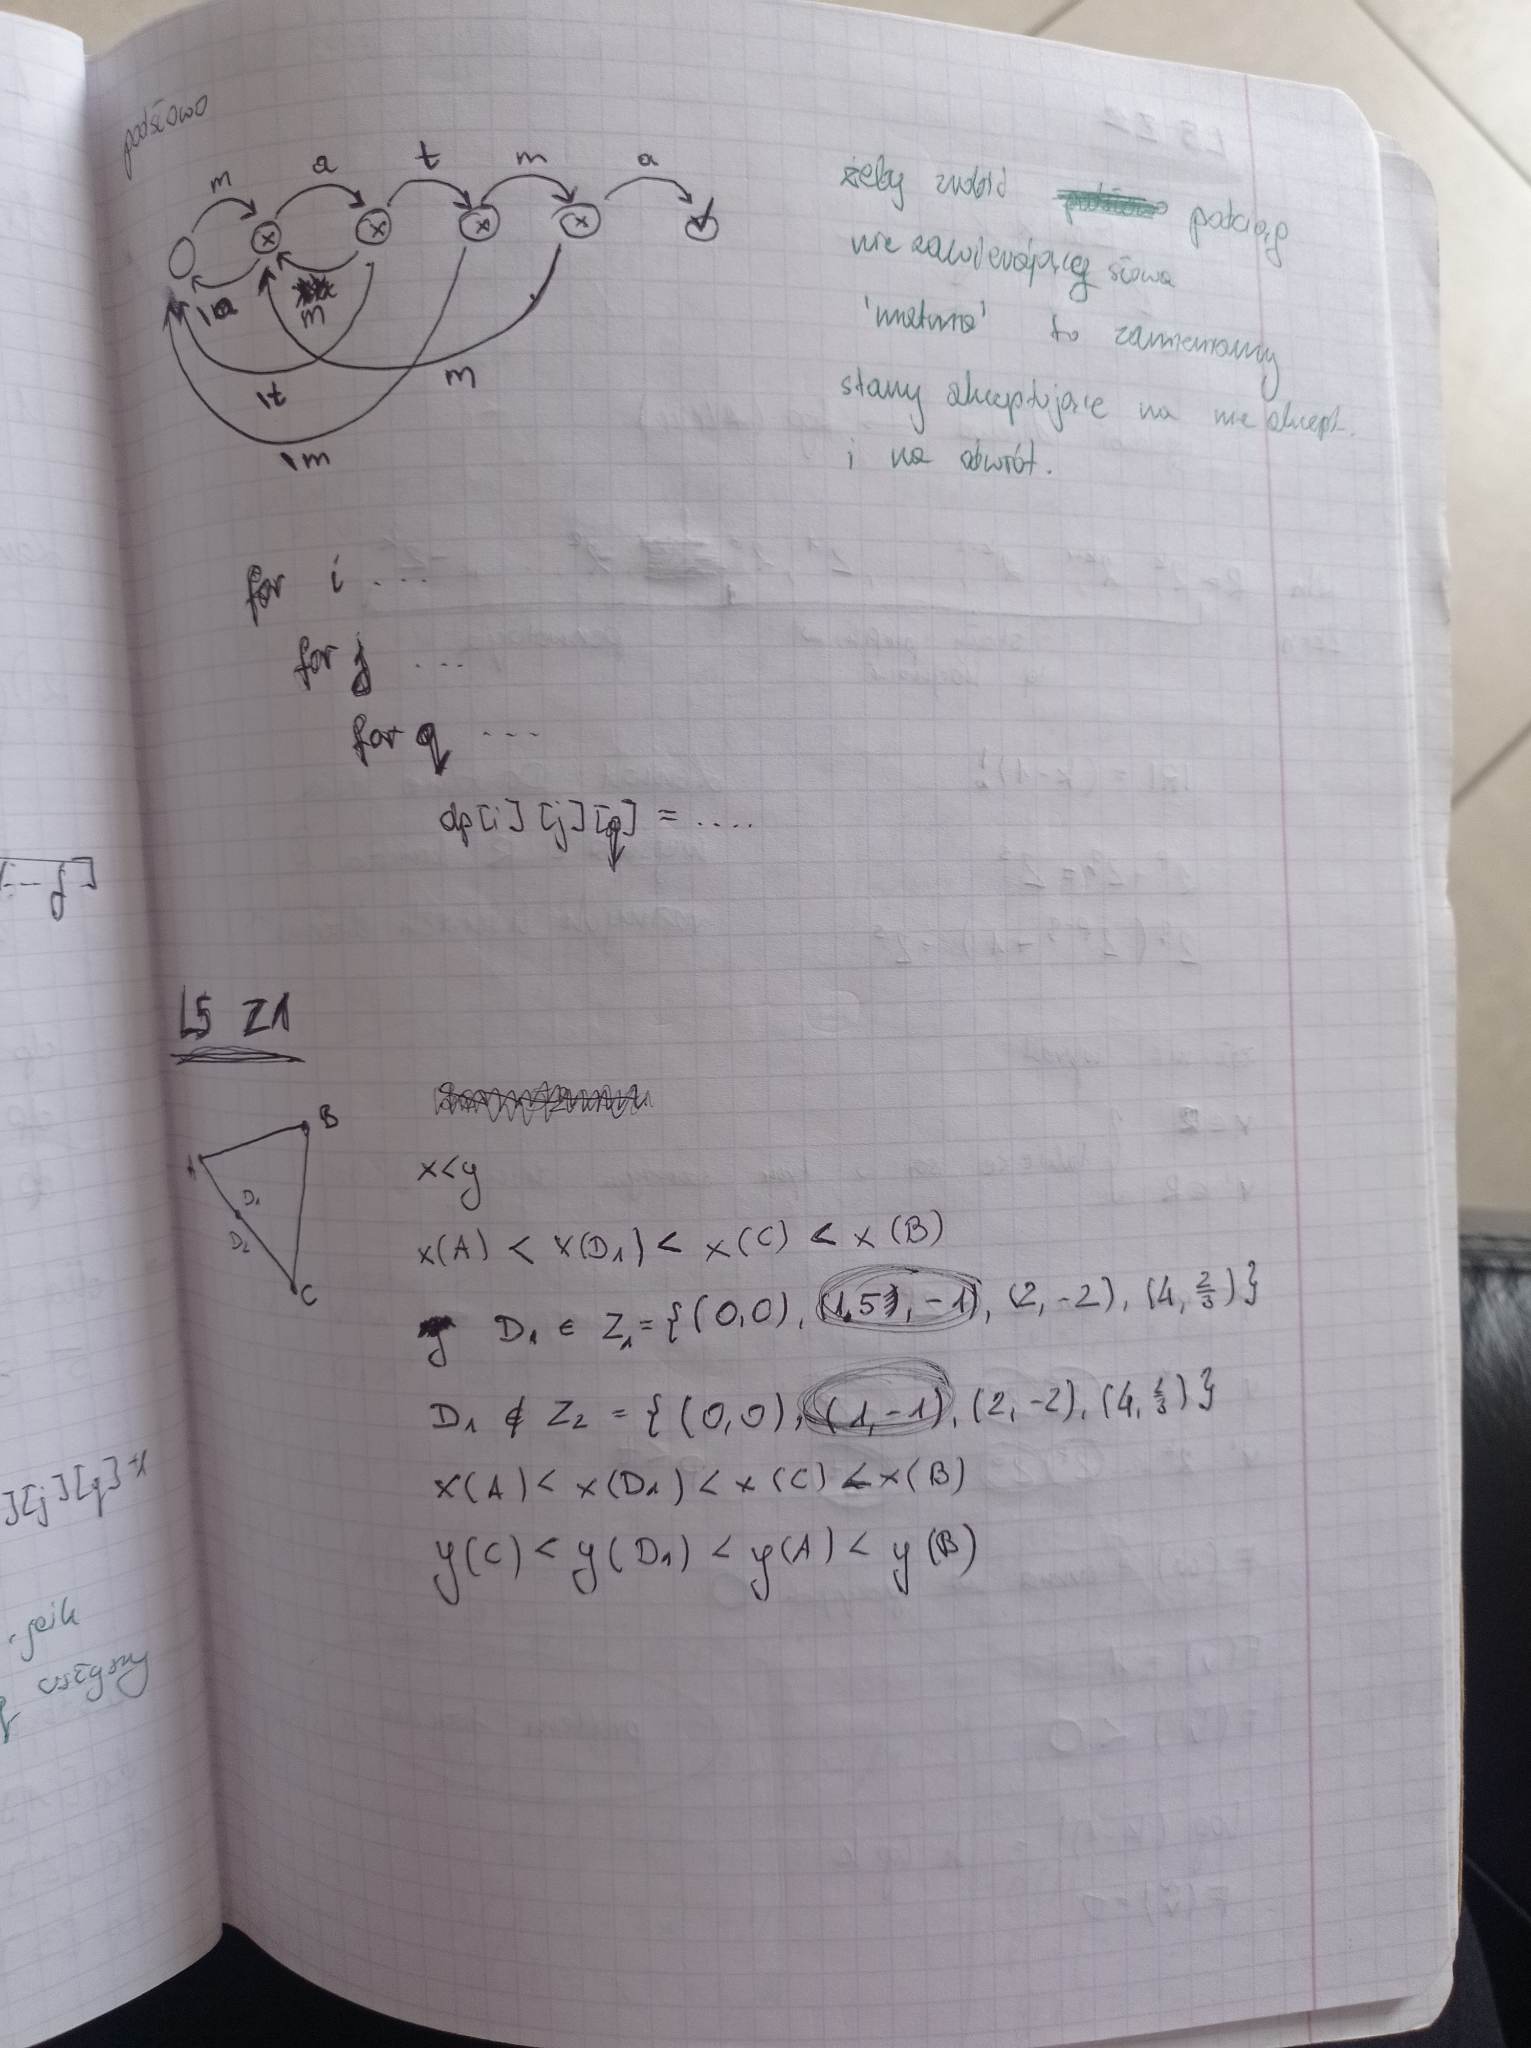 podsłowo
m a t m a
\a m
\t m
\m
żeby zrobić podciąg
nie zawierający słowa
'matma' to zamieniamy
stany akceptujące na nie akcept.
i na odwrót.
for i ...
for j ...
for q ...
dp[i][j][q] = ....
L5 Z1
B
A
D₁
D₂
C
x<y
x(A) < x(D₁) < x(C) < x(B)
D₁ ∈ Z₁ = {(0,0), (1,5, -1), (2,-2), (4, 2/3)}
D₁ ∉ Z₂ = {(0,0), (1,-1), (2,-2), (4, 2/3)}
x(A) < x(D₁) < x(C) < x(B)
y(C) < y(D₁) < y(A) < y(B)
][j][q]